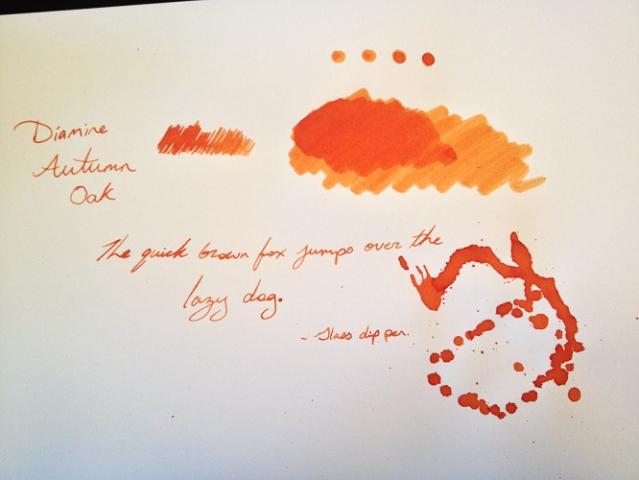 Diamine
Autumn
Oak
The quick brown fox jumps over the
lazy dog.
- Glass dip pen.